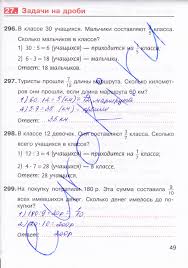 27. Задачи на дроби
296. В классе 30 учащихся. Мальчики составляют
класса. Сколько мальчиков в классе?
1) 30 : 5 = 6 (учащихся) — приходится на 1/5 класса;
2) 6 · 3 = 18 (учащихся) — мальчики.
Ответ: 18 мальчиков.
297. Туристы прошли 7/12 длины маршрута. Сколько километ-
ров они прошли, если длина маршрута 60 км?
1) 60 : 12 = 5 (км)
2) 5 · 7 = 35 (км) – прошли
Ответ: 35 км
298. В классе 12 девочек. Они составляют 2/5 класса. Сколько
учащихся в классе?
1) 12 : 2 = 6 (учащихся) — приходится на 1/5 класса;
2) 6 · 5 = 30 (учащихся) — в классе.
Ответ: 30 учащихся.
299. На покупку потратили 180 р. Эта сумма составила
всех имевшихся денег. Сколько имелось денег?
Ответ: 200р
49